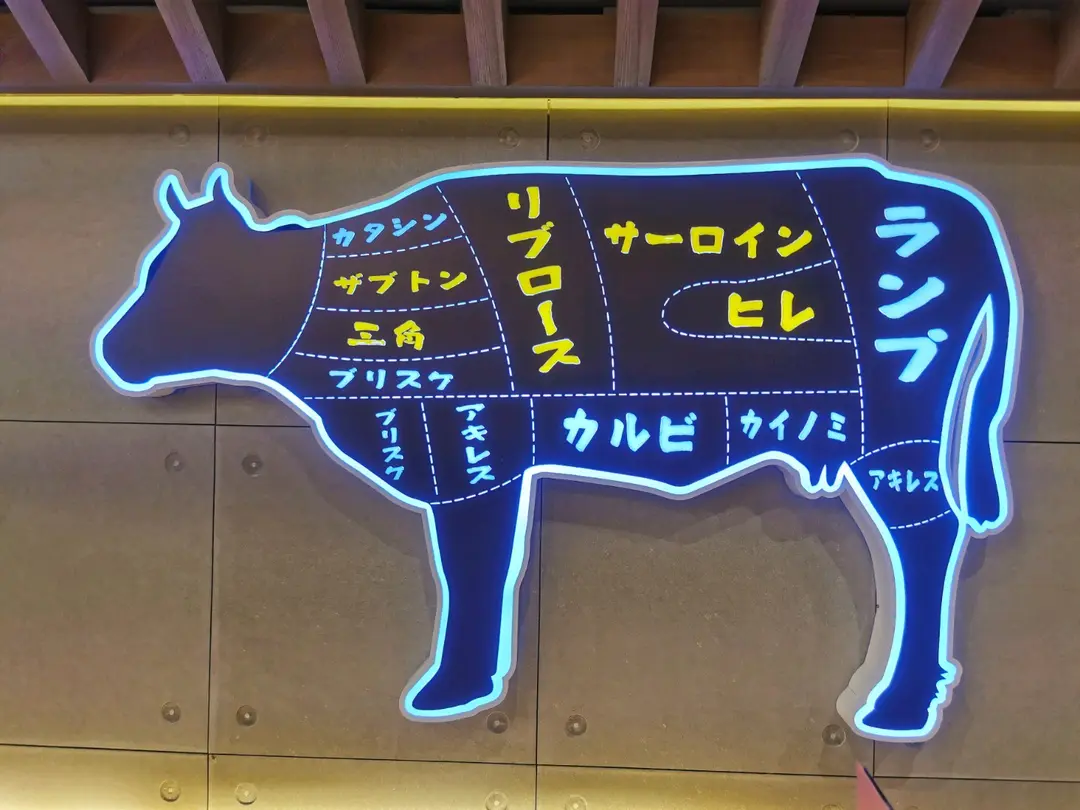 カタシン
ザブトン
三角
ブリスケ
ブリスケ
アキレス
リブロース
サーロイン
ヒレ
カルビ
カイノミ
ランブ
アキレス